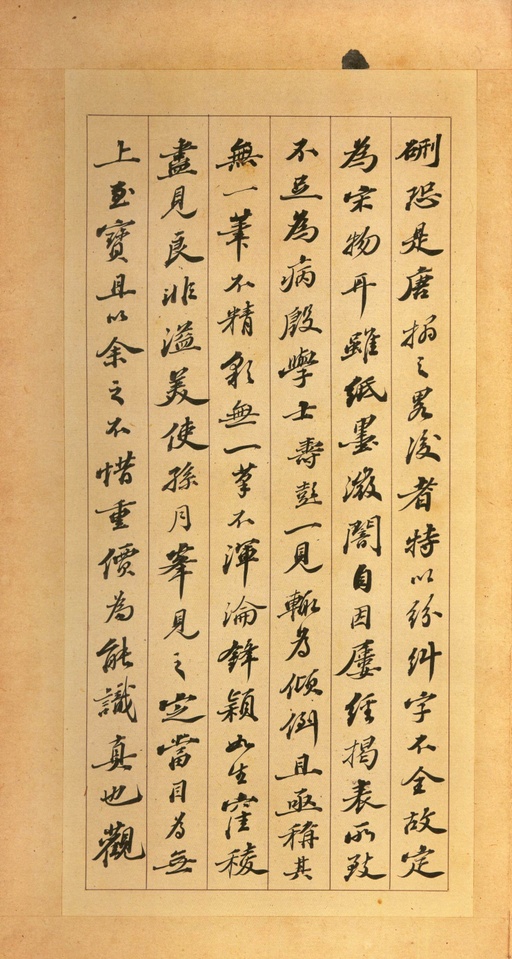 硎恐是唐搨之畧後者特以紛糾字不全故定
為宋物耳雖紙墨潋闇自因屢經揭表所致
不足為病殷學士壽彭一見輒為傾倒且亟稱其
無一筆不精彩無一筆不渾淪鋒穎如生窪稜
盡見良非溢美使孫月峯見之定當目為無
上至寶且以余之不惜重價為能識真也觀